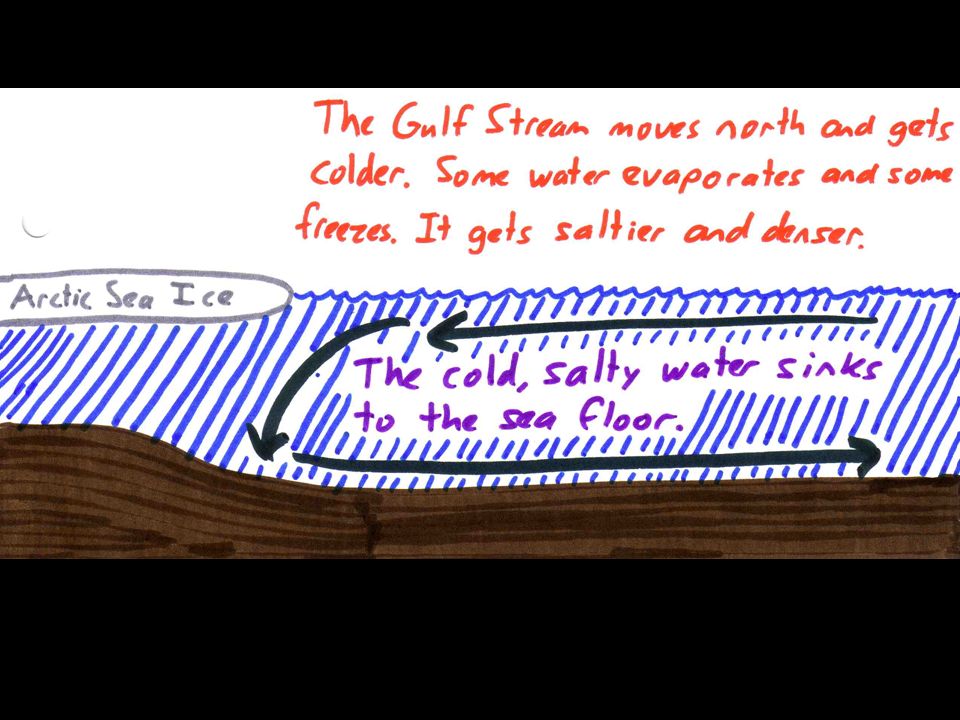 The Gulf Stream moves north and gets
colder. Some water evaporates and some
freezes. It gets saltier and denser.
Arctic Sea Ice
The cold, salty water sinks
to the sea floor.